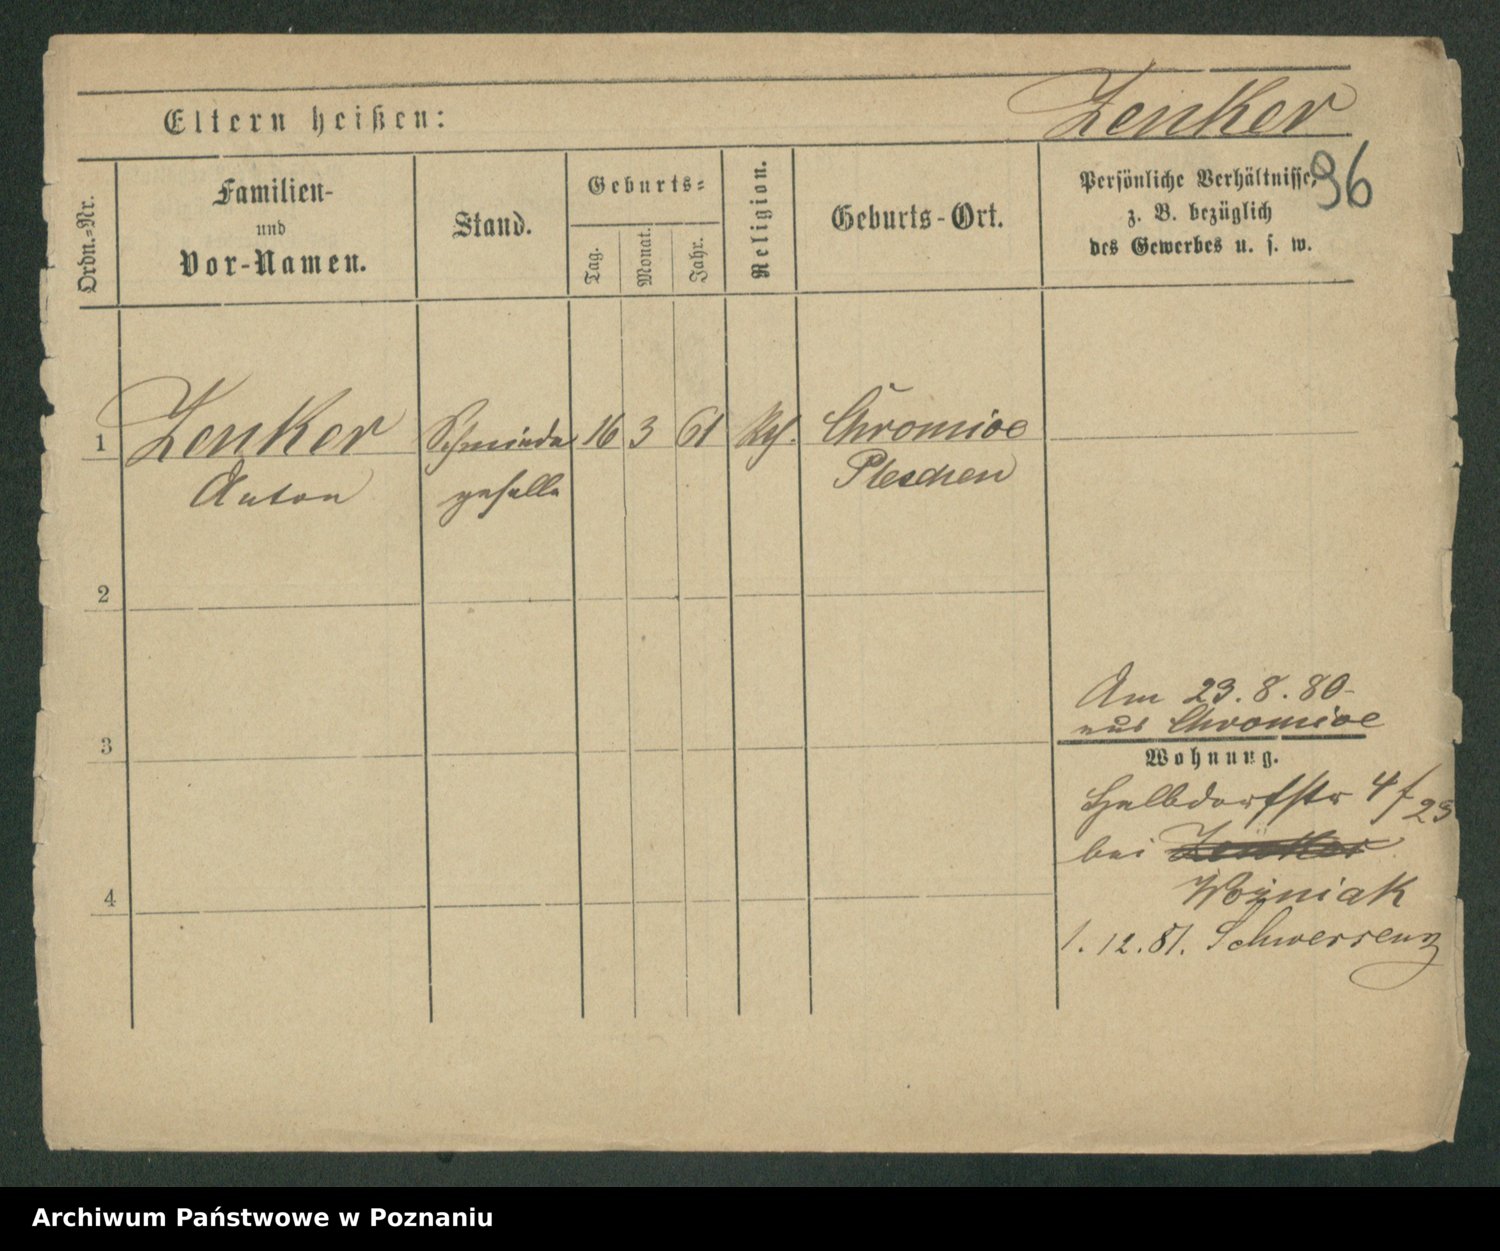 Eltern heißen:
Zenker
96
Ordn.-Nr.
Familien-
und
Vor-Namen.
Stand.
Geburts-
Tag.
Monat.
Jahr.
Religion.
Geburts-Ort.
Persönliche Verhältnisse,
z. B. bezüglich
des Gewerbes u. s. w.
1 Zenker Schmiede 16 3 61 Kth. Chromice
Anton geselle Pleschen
2
3
4
Am 23.8.80
aus Chromice
Wohnung.
Halbdorfstr 4/23
bei Zenker
Wozniak
1.12.81. Schwersenz
Archiwum Państwowe w Poznaniu